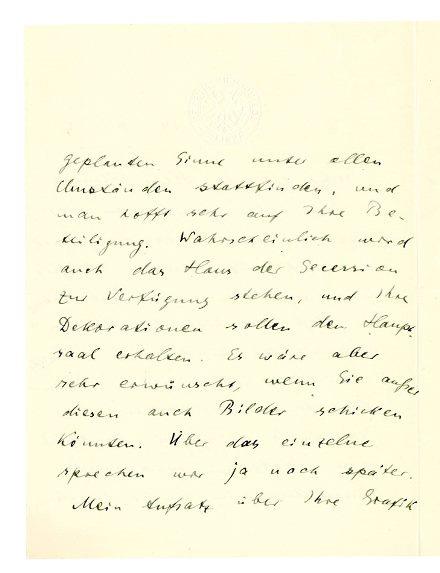 geplanten Sinne unter allen
Umständen stattfinden, und
man hofft sehr auf Ihre Be-
teiligung. Wahrscheinlich wird
auch das Haus der Secession
zur Verfügung stehen, und Ihre
Dekorationen sollen den Haupt
saal erhalten. Es wäre aber
sehr erwünscht, wenn Sie außer
diesen auch Bilder schicken
könnten. Über das einzelne
sprechen wir ja noch später.
Mein Aufsatz über Ihre Grafik